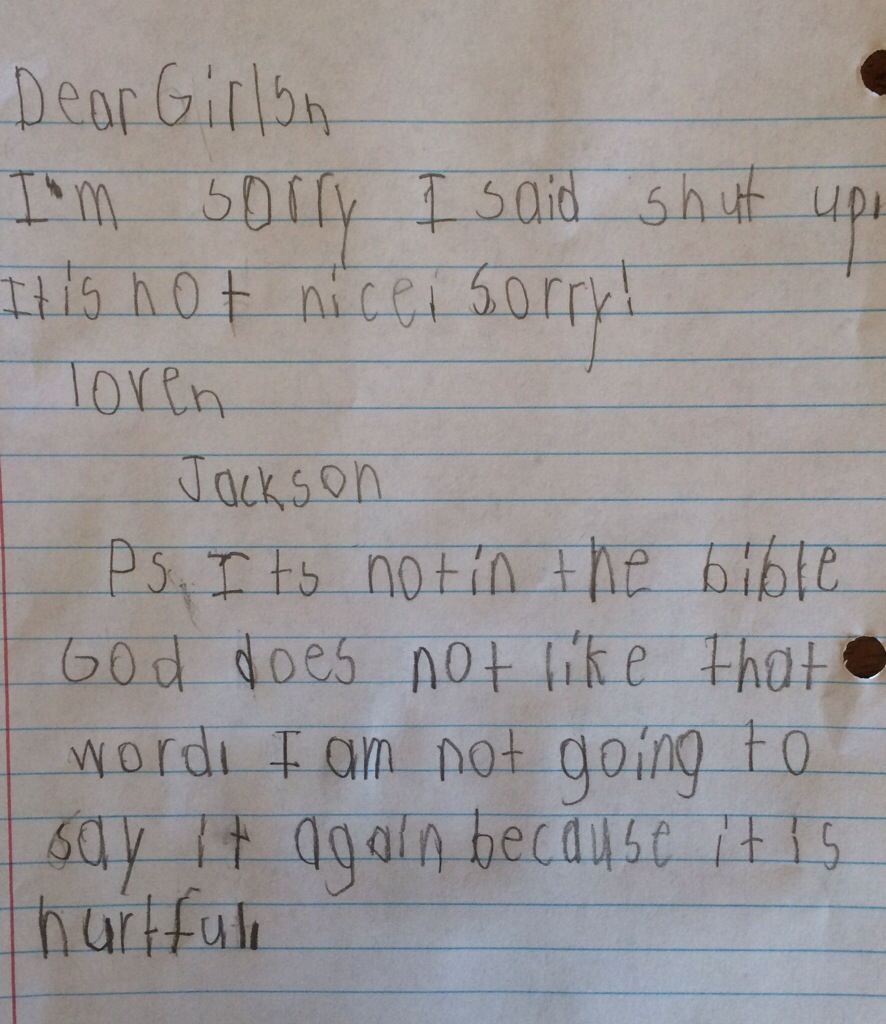 Dear Girlsn
I'm sorry I said shut up.
It is not nice. Sorry!
loven
Jackson
Ps. Its not in the bible
God does not like that
word. I am not going to
say it again because it is
hurtful.